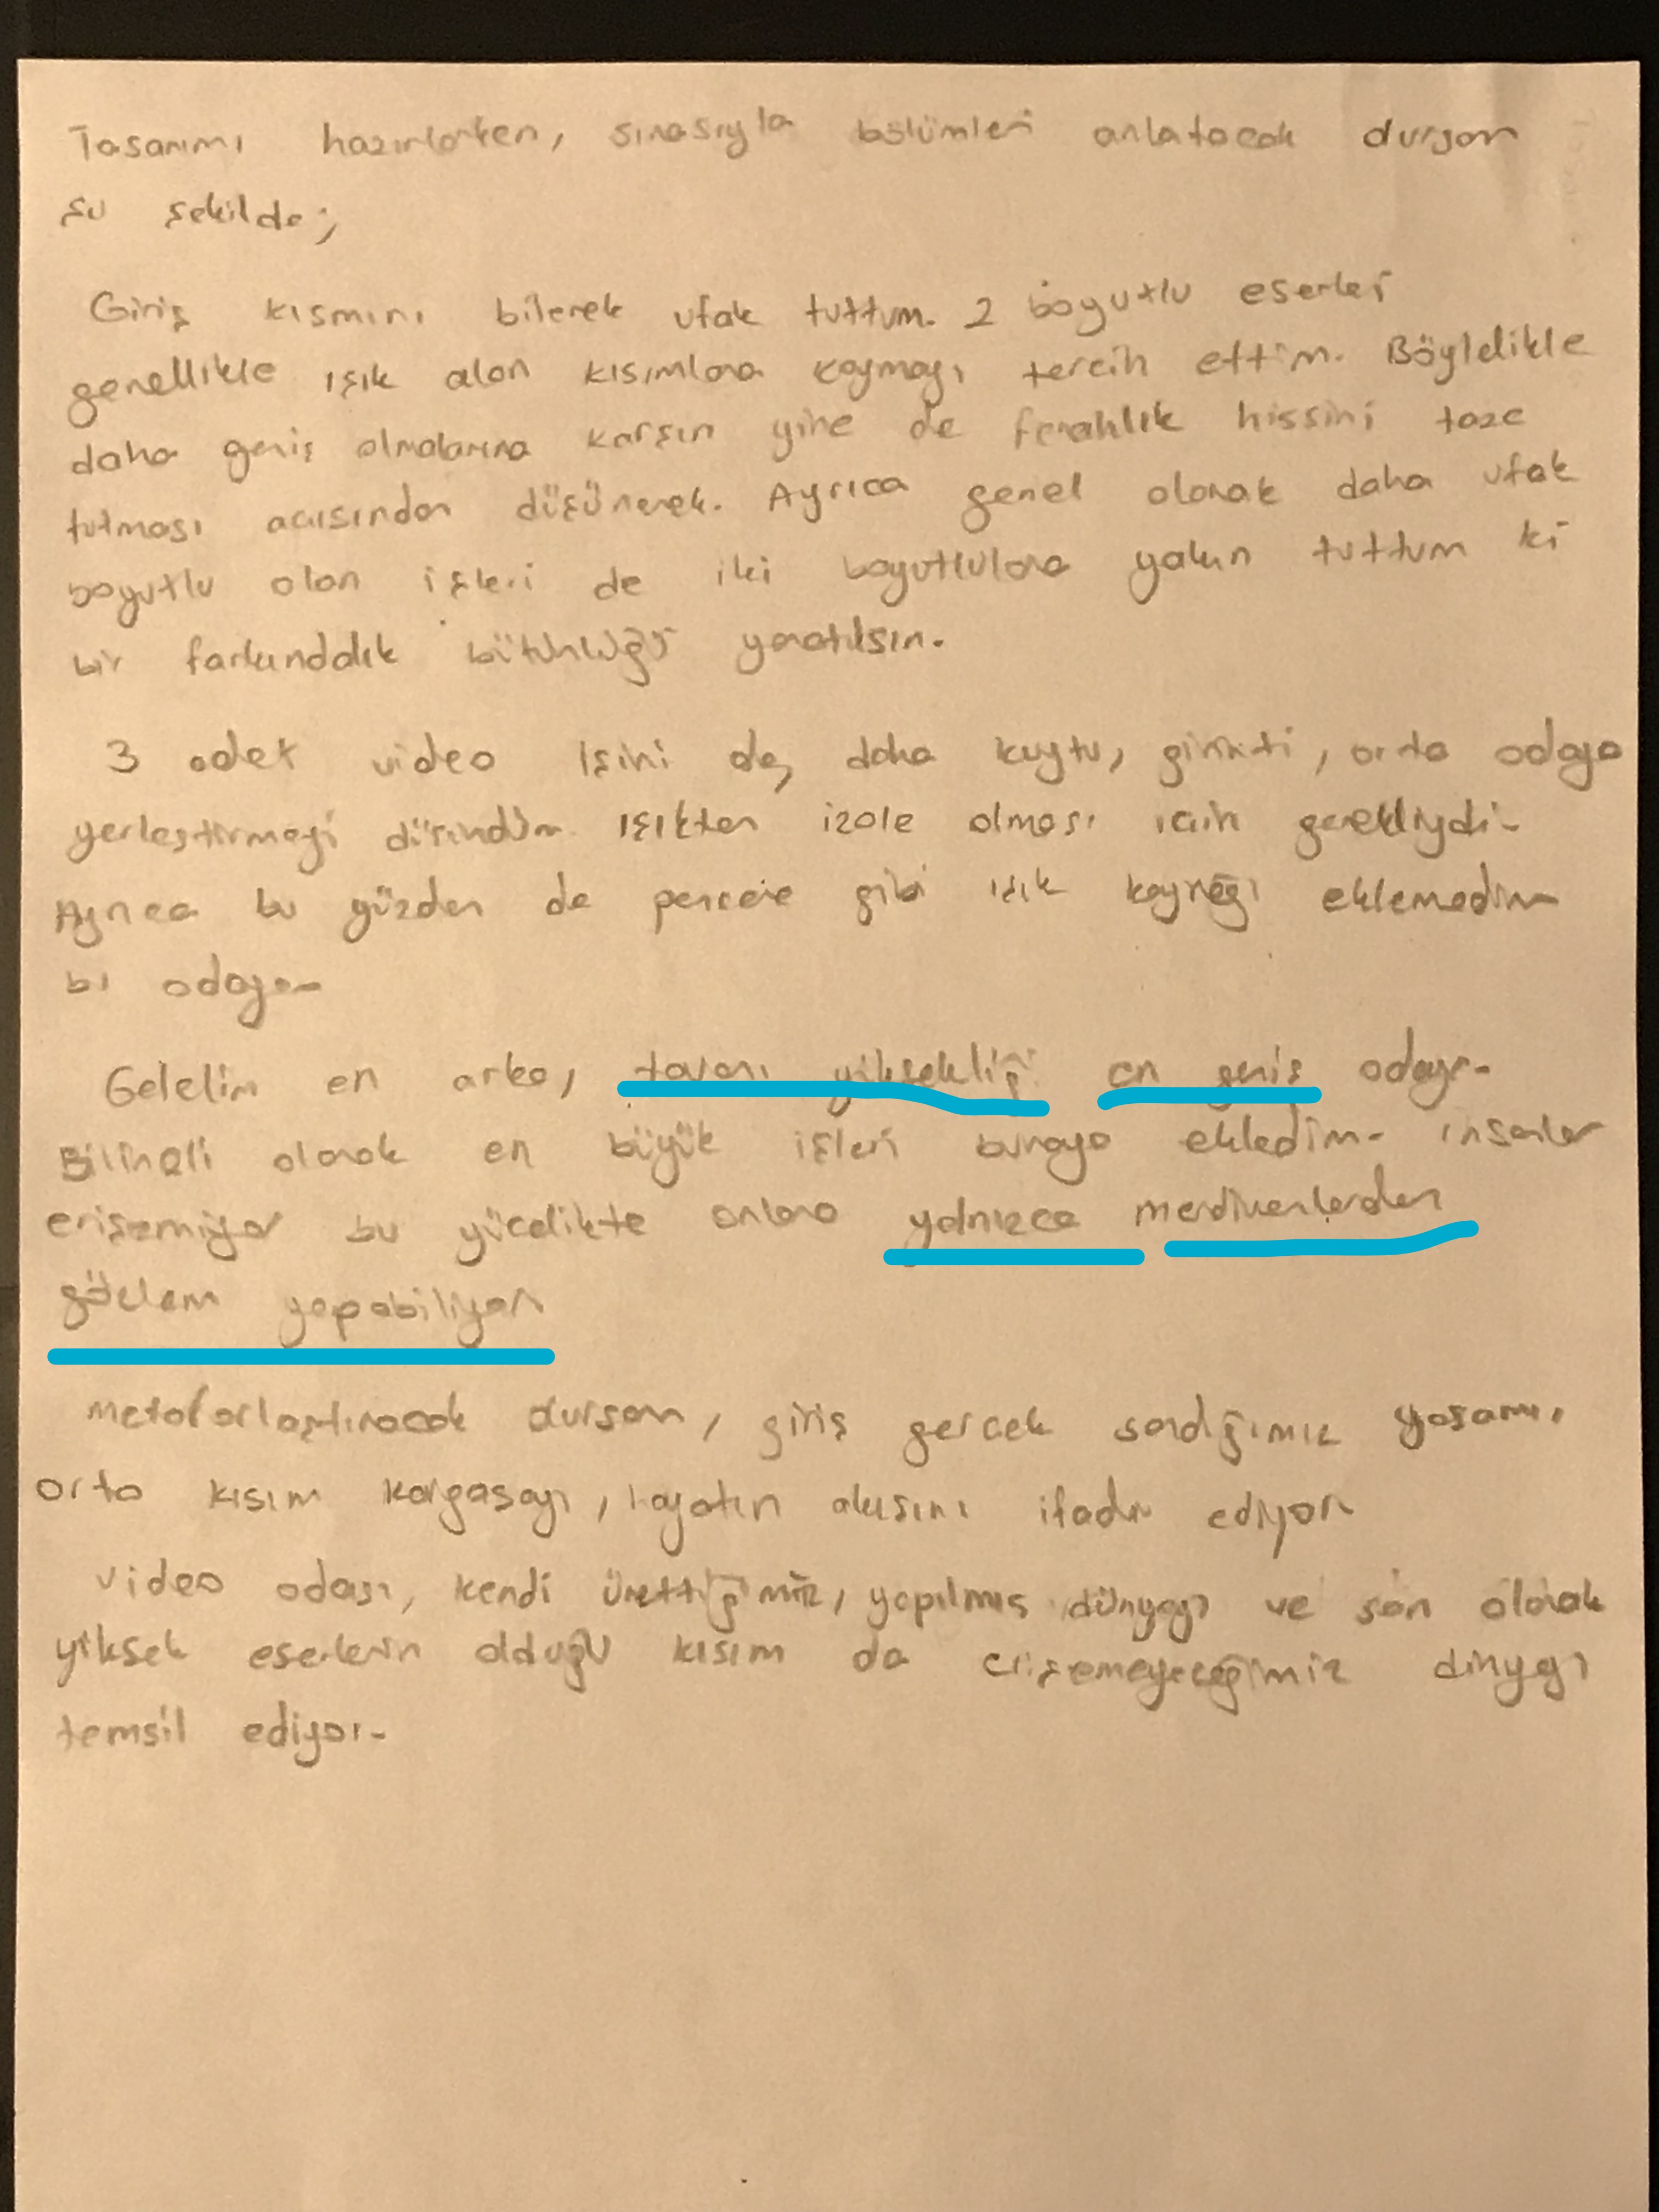 Tasarımı hazırlarken, sırasıyla bölümleri anlatacak dursam
şu şekilde;
Giriş kısmını bilerek ufak tuttum. 2 boyutlu eserleri
genellikle ışık alan kısımlara koymayı tercih ettim. Böylelikle
daha geniş olmalarına karşın yine de ferahlık hissini taze
tutması acısından düşünerek. Ayrıca genel olarak daha ufak
boyutlu olan işleri de iki boyutlulara yakın tuttum ki
bir farkındalık bütünlüğü yaratılsın.
3 adet video işini de, daha kuytu, girintili, orta odaya
yerleştirmeyi düşündüm ışıktan izole olması icin gerekliydi.
Ayrıca bu yüzden de pencere gibi ışık kaynağı eklemedim
bu odaya.
Gelelim en arka, tavanı yüksekliği en geniş odaya.
Bilinçli olarak en büyük işleri buraya ekledim. insanlar
erişemiyor bu yücelikte onlara yalnızca merdivenlerden
gözlem yapabiliyor
metaforlaştıracak dursam, giriş gercek sandığımız yaşamı,
orta kısım kargaşayı, hayatın akışını ifade ediyor
video odası, kendi ürettiğimiz, yapılmış dünyayı ve son olarak
yüksek eserlerin olduğu kısım da erişemeyeceğimiz dünyayı
temsil ediyor.